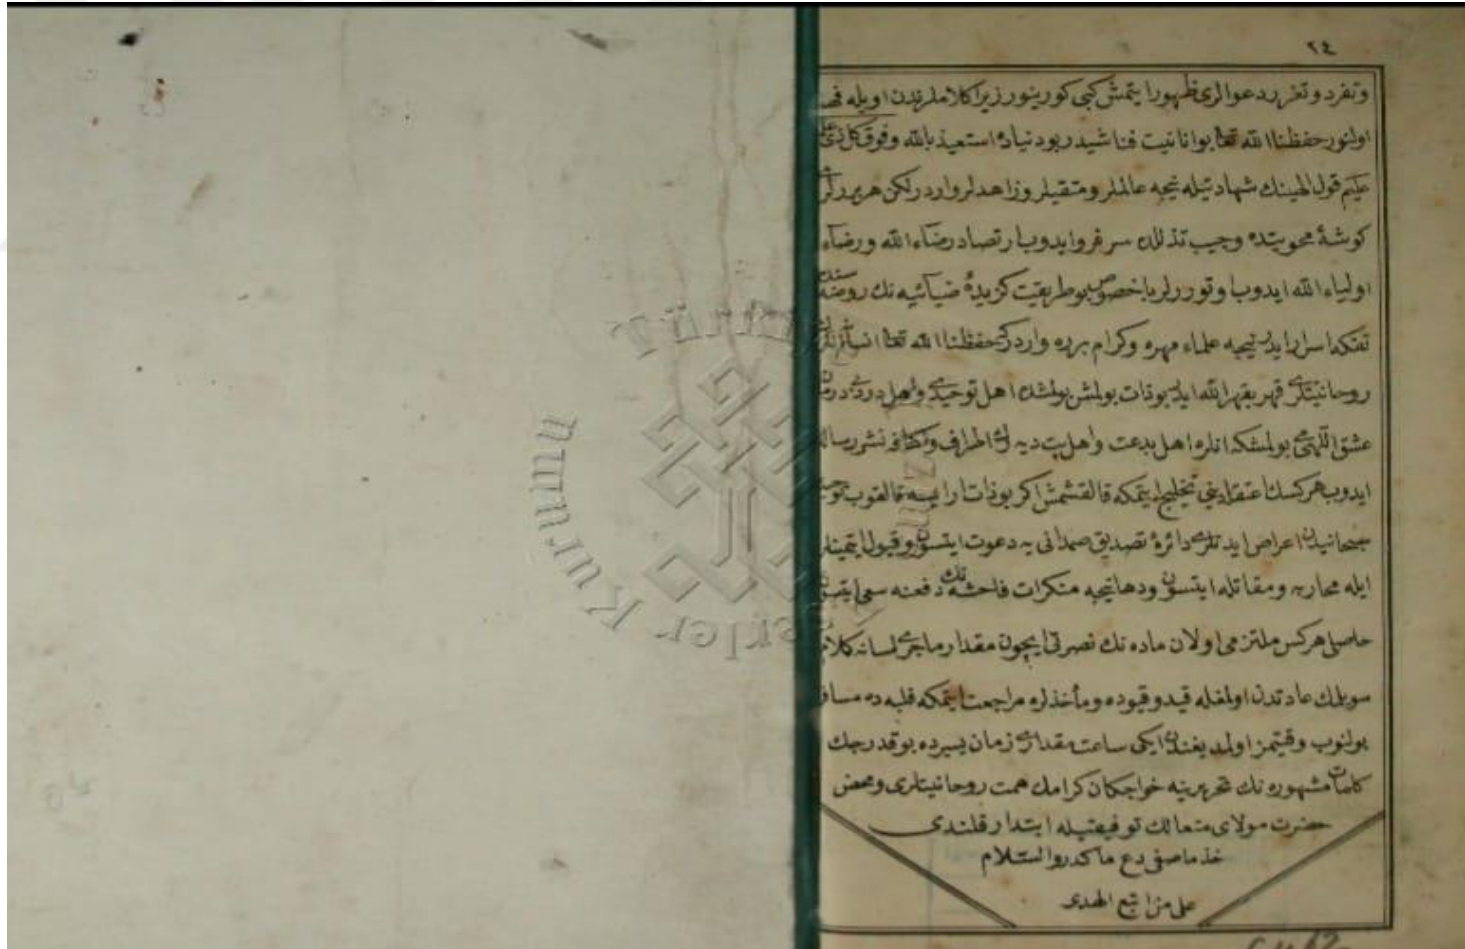 ٢٤
وتفرد وتغرر دعوالری ظهور ایتمش کبی کورینور زیرا کلاملرندن اویله فهم
اولنور حفظنا الله تعا بوانانیت فناشیدر بودنیاده استعیذ بالله وفوق کل ذی علم
علیم قول الهینك شهادتیله نیجه عالملر ومتقیلر وزاهدلر واردر لکن هر بر
کوشهٔ محویتده وجیب تذللده سرفرو ایدوب ارتصاد رضاء الله ورضاء
اولیاء الله ایدوب اوتوررلر باخصوص بوطریقت کزیدهٔ ضیائیه نك روضه سنده
تفکه اسرار ایدن نیجه علماء مهره وکرام برره واردرکه حفظنا الله تعا
روحانیتلری قهر بقهر الله ایدر بوذات بولمش بولمشده اهل توحیدی واهل دردی
عشق اللهی بولمشکه انلره اهل بدعت واهل دیه رك اطراف واکنافه نشر رساله
ایدوب هرکسك اعتقادینی تخلیج ایتمکه قالقشمش اکر بوذات ار ایسه قالقوب توحید
سبحانیدن اعراض ایدنلری دائرهٔ تصدیق صمدانی یه دعوت ایتسون وقبول ایتمینلر
ایله محاربه ومقاتله ایتسون ودها نیجه منکرات فاحشه نك دفعنه سعی ایتسون
حاصلی هرکس ملتزمی اولان ماده نك نصرتی ایچون مقدار ماجری لسانه کلام
سویلمك عادتدن اولمغله قید وقیوده ومأخذلره مراجعت ایتمکه قلبده مسافر
بولنوب وقتمز اولمدیغندن ایکی ساعت مقداری زمان یسیرده بوقدرجك
کلمات مشهوره نك تحریرینه خواجکان کرامك همت روحانیتلری ومحض
حضرت مولای متعالك توفیقیله ابتدار قلندی
خذ ما صفی دع ما کدر والسلام
علی من اتبع الهدی